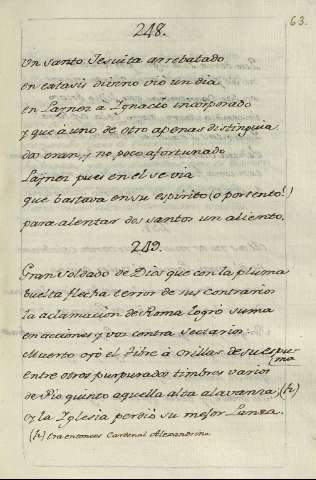 63.
248.
Un santo Jesuita arrebatado
en extasis divino vio un dia
en Laynez à Ignacio incorporado
y que à uno de otro apenas distinguia
dos eran, y no poco afortunado
Laynez pues en el se via
que bastava en su espiritu (o portento!)
para alentar dos santos un aliento.
249.
Gran soldado de Dios que con la pluma
buelta flecha terror de sus contrarios
la aclamacion de Roma logrò suma
en acciones y voz contra sectarios:
Muerto oyò el Tibre à orillas de su espu-
ma
entre otros purpurados timbres varios
de Pio quinto aquella alta alavanza; (h)
oy la Iglesia perdiò su mejor Lanza.
(h) Era entonces Cardenal Alexandrino